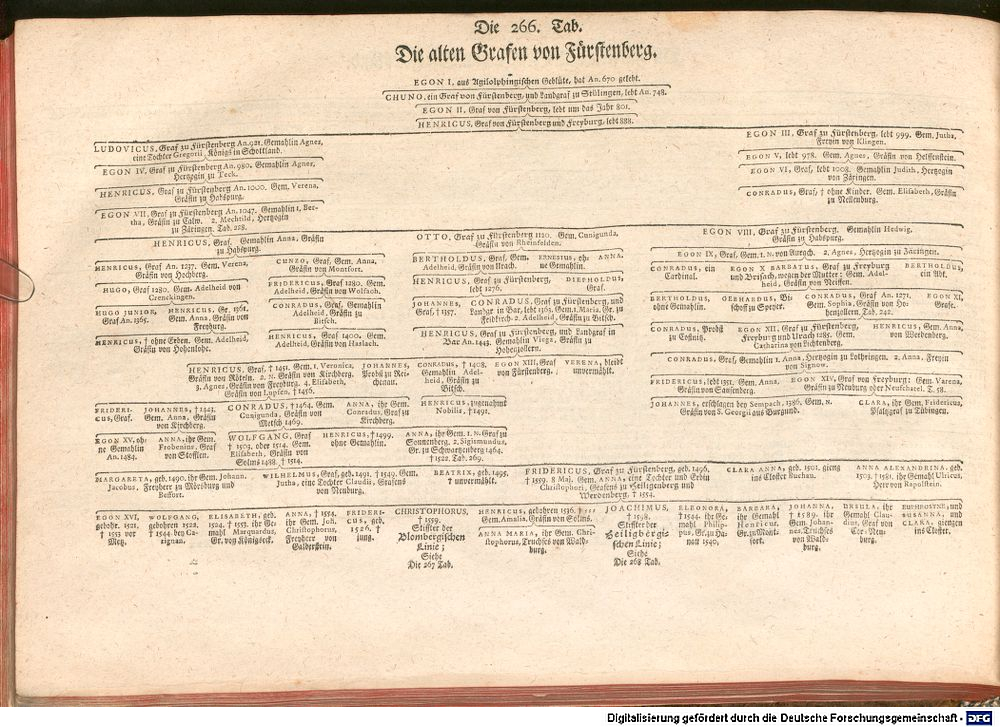 Die 266. Tab.
Die alten Grafen von Fürstenberg.
EGON I. aus Agilolphingischen Geblüte, hat An. 670 gelebt.
CHUNO, ein Graf von Fürstenberg, und Landgraf zu Stülingen, lebt An. 748.
EGON II, Graf von Fürstenberg, lebt um das Jahr 801.
HENRICUS, Graf von Fürstenberg und Freyburg, lebt 888.
LUDOVICUS, Graf zu Fürstenberg An. 921. Gemahlin Agnes,
eine Tochter Gregorii, Königs in Schottland.
EGON IV, Graf zu Fürstenberg An. 980. Gemahlin Agnes,
Hertzogin zu Teck.
HENRICUS, Graf zu Fürstenberg An. 1000. Gem. Verena,
Gräfin zu Habspurg.
EGON VII, Graf zu Fürstenberg An. 1047. Gemahlin 1, Ber-
tha, Gräfin zu Calw. 2, Mechtild, Hertzogin
zu Zäringen. Tab. 258.
EGON III, Graf zu Fürstenberg, lebt 999. Gem. Jutha,
Freyin von Klingen.
EGON V, lebt 978. Gem. Agnes, Gräfin von Helfenstein.
EGON VI, Graf, lebt 1008. Gemahlin Judith, Hertzogin
von Zäringen.
CONRADUS, Graf, † ohne Kinder. Gem. Elisabeth, Gräfin
zu Nellenburg.
HENRICUS, Graf. Gemahlin Anna, Gräfin
zu Habspurg.
OTTO, Graf zu Fürstenberg 1120. Gem. Cunigunda,
Gräfin von Rheinfelden.
EGON VIII, Graf zu Fürstenberg, Gemahlin Hedwig,
Gräfin zu Habspurg.
HENRICUS, Graf An. 1237. Gem. Verena,
Gräfin von Hochberg.
CUNZO, Graf, Gem. Anna,
Gräfin von Montfort.
HUGO, Graf 1280. Gem. Adelheid von
Crenckingen.
FRIDERICUS, Graf 1280. Gem.
Adelheid, Gräfin von Wolfach.
HUGO JUNIOR,
Graf An. 1365.
HENRICUS, Gr. 1361.
Gem. Anna, Gräfin von
Freyburg.
CONRADUS, Graf, Gemahlin
Adelheid, Gräfin zu
Bitsch.
HENRICUS, † ohne Erben. Gem. Adelheid,
Gräfin von Hohenlohe.
HENRICUS, Graf 1400. Gem.
Adelheit, Gräfin von Haslach.
BERTHOLDUS, Graf, Gem.
Adelheid, Gräfin von Urach.
ERNESTUS, oh-
ne Gemahlin.
ANNA.
HENRICUS, Graf zu Fürstenberg,
lebt 1276.
DIEPHOLDUS,
Graf.
JOHANNES,
Graf, † 1357.
CONRADUS, Graf zu Fürstenberg, und
Landgr. in Bar, lebt 1365. Gem. 1. Maria, Gr. zu
Feldkirch. 2. Adelheid, Gräfin zu Bitsch.
HENRICUS, Graf zu Fürstenberg, und Landgraf in
Bar An. 1443. Gemahlin Virga, Gräfin zu
Hohenzollern.
EGON IX, Graf, Gem. 1, N. von Auegch. 2, Agnes, Hertzogin zu Zäringen.
CONRADUS, ein
Cardinal.
EGON X BARBATUS, Graf zu Freyburg
und Breisach, wegen der Mutter; Gem. Adel-
heid, Gräfin von Neiffen.
BERTHOLDUS,
ein Abt.
BERTHOLDUS,
ohne Gemahlin.
GEBHARDUS, Bi-
schoff zu Speyer.
CONRADUS, Graf An. 1271.
Gem. Sophia, Gräfin von Ho-
henzollern, Tab. 242.
EGON XI,
Graf.
CONRADUS, Probst
zu Costnitz.
EGON XII, Graf zu Fürstenberg,
Freyburg und Urach 1285. Gem.
Catharina von Lichtenberg.
HENRICUS, Gem. Anna,
von Werdenberg.
CONRADUS, Graf, Gemahlin 1. Anna, Hertzogin zu Lothringen. 2, Anna, Freyin
von Signow.
FRIDERICUS, lebt 1351. Gem. Anna,
Gräfin von Sausenberg.
EGON XIV, Graf von Freyburg: Gem. Varena,
Gräfin zu Neuburg oder Neufchatel. T. 58.
JOHANNES, erschlagen bey Sempach, 1386. Gem. N.
Gräfin von S. Georgii aus Burgund.
CLARA, ihr Gem. Fridericus,
Pfaltzgraf zu Tübingen.
HENRICUS, Graf, † 1451. Gem. 1, Veronica,
Gräfin von Röteln. 2. N. Gräfin von Kirchberg.
3. Agnes, Gräfin von Freyburg. 4, Elisabeth,
Gräfin von Lupfen, † 1456.
JOHANNES,
Probst zu Rei-
chenau.
CONRADUS, † 1408.
Gemahlin Adel-
heid, Gräfin zu
Bitsch.
EGON XIII, Graf
von Fürstenberg.
VERENA, bleibt
unvermählt.
FRIDERI-
CUS, Graf.
JOHANNES, † 1443.
Gem. Anna, Gräfin
von Kirchberg.
CONRADUS, † 1464. Gem.
Cunigunda, Gräfin von
Metsch 1469.
ANNA, ihr Gem.
Conradus, Graf zu
Kirchberg.
HENRICUS, zugenahmt
Nobilis, † 1491.
EGON XV, oh-
ne Gemahlin
An. 1484.
ANNA, ihr Gem.
Frobenius, Graf
von Stoffeln.
WOLFGANG, Graf
† 1509, oder 1514. Gem.
Elisabeth, Gräfin von
Solms 1488. † 1514.
HENRICUS, † 1499.
ohne Gemahlin.
ANNA, ihr Gem. 1. N. Graf zu
Sonnenberg. 2, Sigismundus,
Gr. zu Schwartzenberg 1464.
† 1522. Tab. 269.
MARGARETA, geb. 1490. ihr Gem. Johann.
Jacobus, Freyherr zu Mörsburg und
Beffort.
WILHELMUS, Graf, geb. 1491. † 1549. Gem.
Jutha, eine Tochter Claudii, Grafens
von Neuburg.
BEATRIX, geb. 1495.
† unvermählt.
FRIDERICUS, Graf zu Fürstenberg, geb. 1496.
† 1559. 8 Maj. Gem. ANNA, eine Tochter und Erbin
Christophori, Grafens zu Heiligenberg und
Werdenberg, † 1554.
CLARA ANNA, geb. 1501. gieng
ins Closter Buchau.
ANNA ALEXANDRINA, geb.
1503. † 1581. ihr Gemahl Ulricus,
Herr von Rapolstein.
EGON XVI,
gebohr. 1521.
† 1553 vor
Metz.
WOLFGANG,
gebohren 1522.
† 1544. bey Ca-
rignan.
ELISABETH, geb.
1524. † 1553. ihr Ge-
mahl Marquardus,
Gr. von Königseck.
ANNA, † 1554.
ihr Gem. Joh.
Christophorus,
Freyherr von
Falckenstein.
FRIDERI-
CUS, geb.
1526. †
jung.
CHRISTOPHORUS,
† 1559.
Stiffter der
Blombergischen
Linie;
Siehe
Die 267 Tab.
HENRICUS, gebohren 1536. †
Gem. Amalia, Gräfin von Solms.
ANNA MARIA, ihr Gem. Chri-
stophorus, Truchses von Wald-
burg.
JOACHIMUS,
† 1598.
Stiffter der
Heiligbergi-
schen Linie;
Siehe
Die 268 Tab.
ELEONORA,
† 1544. ihr Ge-
mahl Philip-
pus, Gr. zu Ha-
nau 1540.
BARBARA,
ihr Gemahl
Henricus,
Gr. zu Mont-
fort.
JOHANNA,
† 1589. ihr
Gem. Johan-
nes, Truchses
von Wald-
burg.
URSULA, ihr
Gemahl Clau-
dius, Graf von
Neu-
burg.
EUPHROSYNE, und
SUSANNA, und
CLARA, giengen
ins Closter.
Digitalisierung gefördert durch die Deutsche Forschungsgemeinschaft - DFG